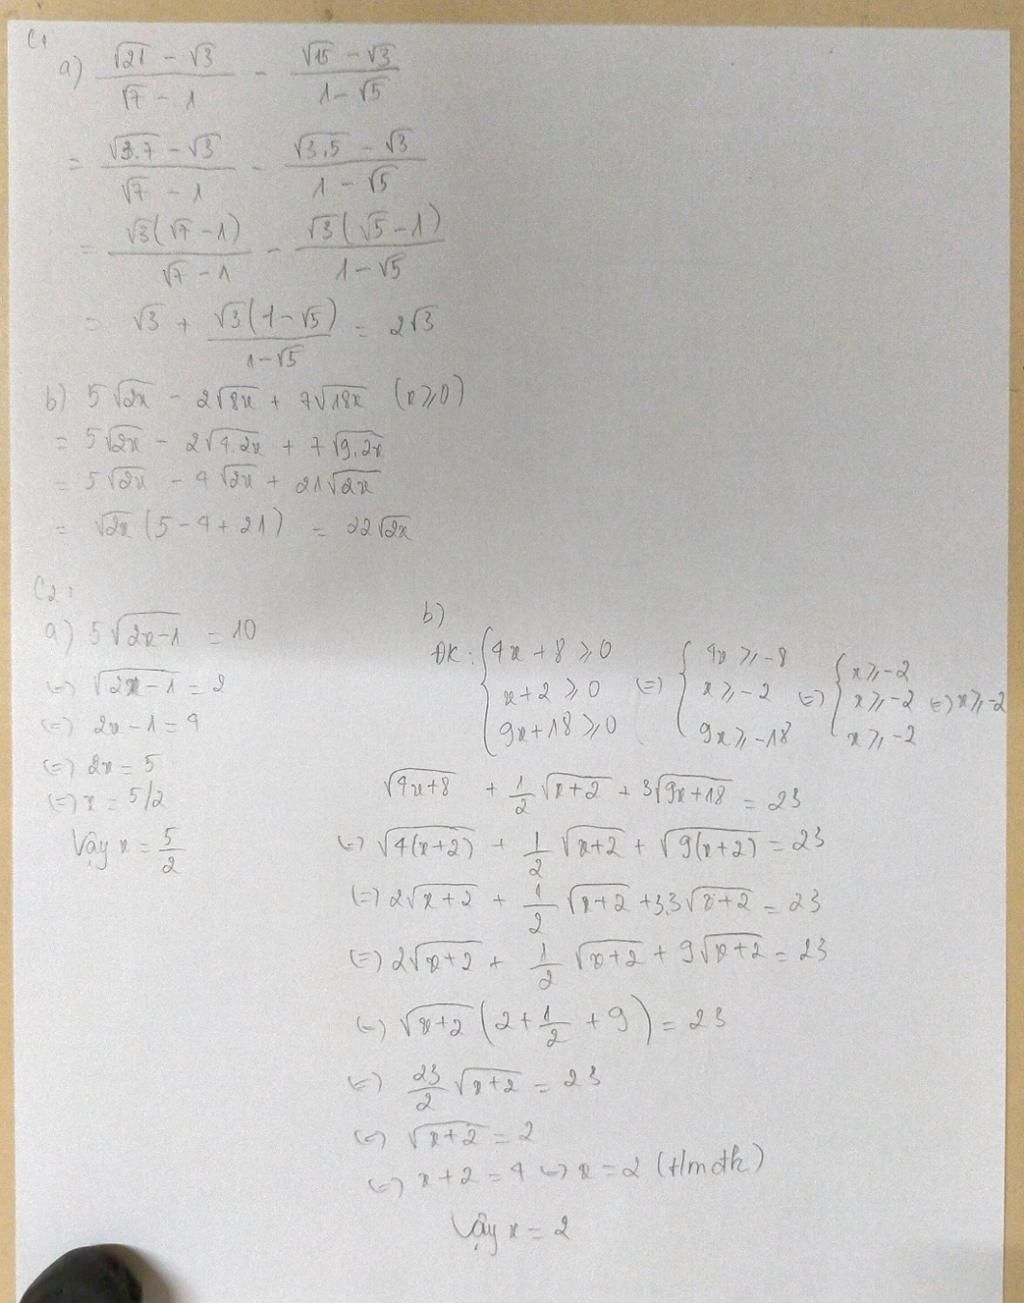 C1
a) (√21 - √3)/(√7 - 1) - (√15 - √3)/(1 - √5)
= (√3.7 - √3)/(√7 - 1) - (√3.5 - √3)/(1 - √5)
= √3(√7 - 1)/(√7 - 1) - √3(√5 - 1)/(1 - √5)
= √3 + √3(1 - √5)/(1 - √5) = 2√3
b) 5√2x - 2√8x + 7√18x (x ⩾ 0)
= 5√2x - 2√4.2x + 7√9.2x
= 5√2x - 4√2x + 21√2x
= √2x (5 - 4 + 21) = 22√2x
C2:
a) 5√(2x-1) = 10
(=) √(2x-1) = 2
(=) 2x - 1 = 4
(=) 2x = 5
(=) x = 5/2
Vậy x = 5/2
b)
ĐK: { 4x + 8 ⩾ 0 ; x + 2 ⩾ 0 ; 9x + 18 ⩾ 0 (=) { 4x ⩾ -8 ; x ⩾ -2 ; 9x ⩾ -18 (=) { x ⩾ -2 ; x ⩾ -2 ; x ⩾ -2 (=) x ⩾ -2
√(4x+8) + 1/2 √(x+2) + 3√(9x+18) = 23
(=) √(4(x+2)) + 1/2 √(x+2) + √(9(x+2)) = 23
(=) 2√(x+2) + 1/2 √(x+2) + 3.3√(x+2) = 23
(=) 2√(x+2) + 1/2 √(x+2) + 9√(x+2) = 23
(=) √(x+2) (2 + 1/2 + 9) = 23
(=) 23/2 √(x+2) = 23
(=) √(x+2) = 2
(=) x + 2 = 4 (=) x = 2 (t/mđk)
Vậy x = 2